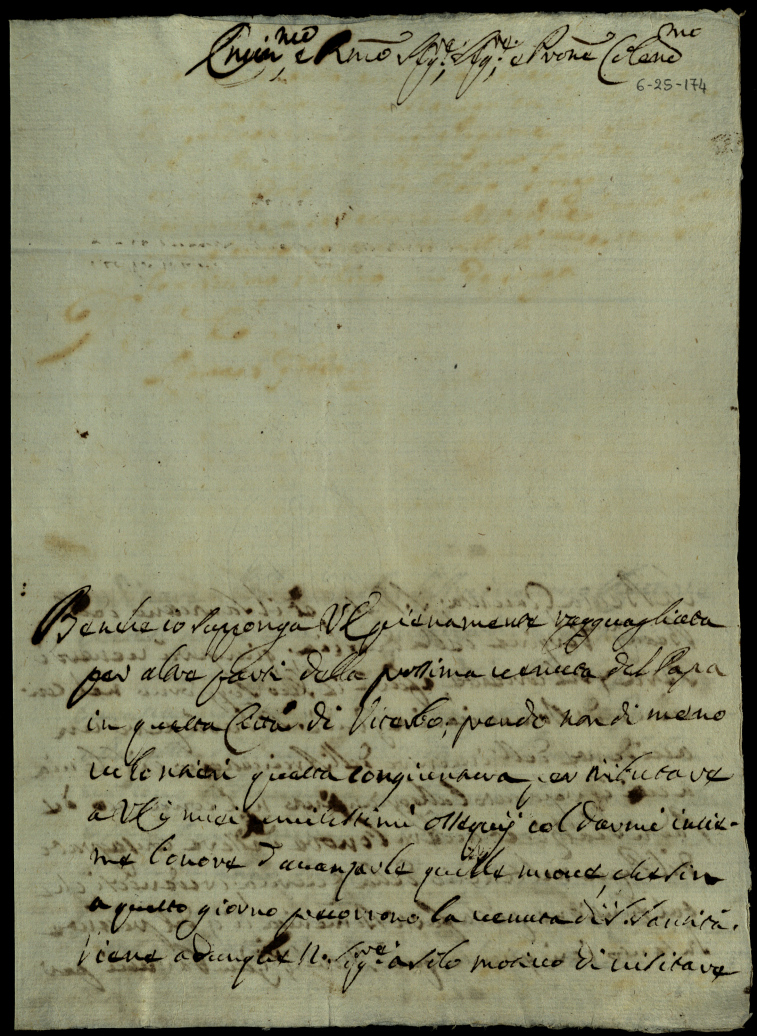 Emin.mo e R.mo Sig.re, Sig.re, e Prone Colend.mo
6-25-174
Benche io supponga VE pienamente ragguagliata
per altre parti della prossima venuta del Papa
in questa Città di Viterbo, prendo non di meno
volontieri questa congiuntura per tributare
a VE i miei umilissimi ossequij col darmi insie-
me l'onore d'avanzarle quelle nuove, che sin
a questo giorno precorrono la venuta di S. Santità.
Viene adunque N. Sig.re a solo motivo di visitare